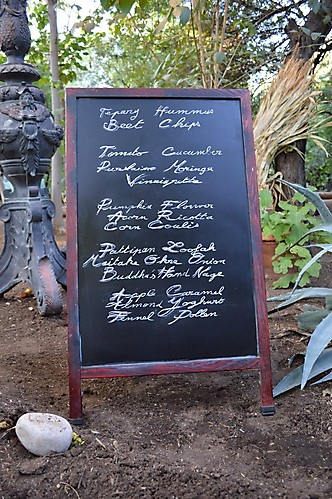 Tepary Hummus
Beet Chips
Tomato Cucumber
Purslane Moringa
Vinaigrette
Pumpkin Flower
Acorn Ricotta
Corn Coulis
Pattipan Loofah
Maitake Okra Onion
Buddha's Hand Nage
Apple Caramel
Almond Yoghurt
Fennel Pollen